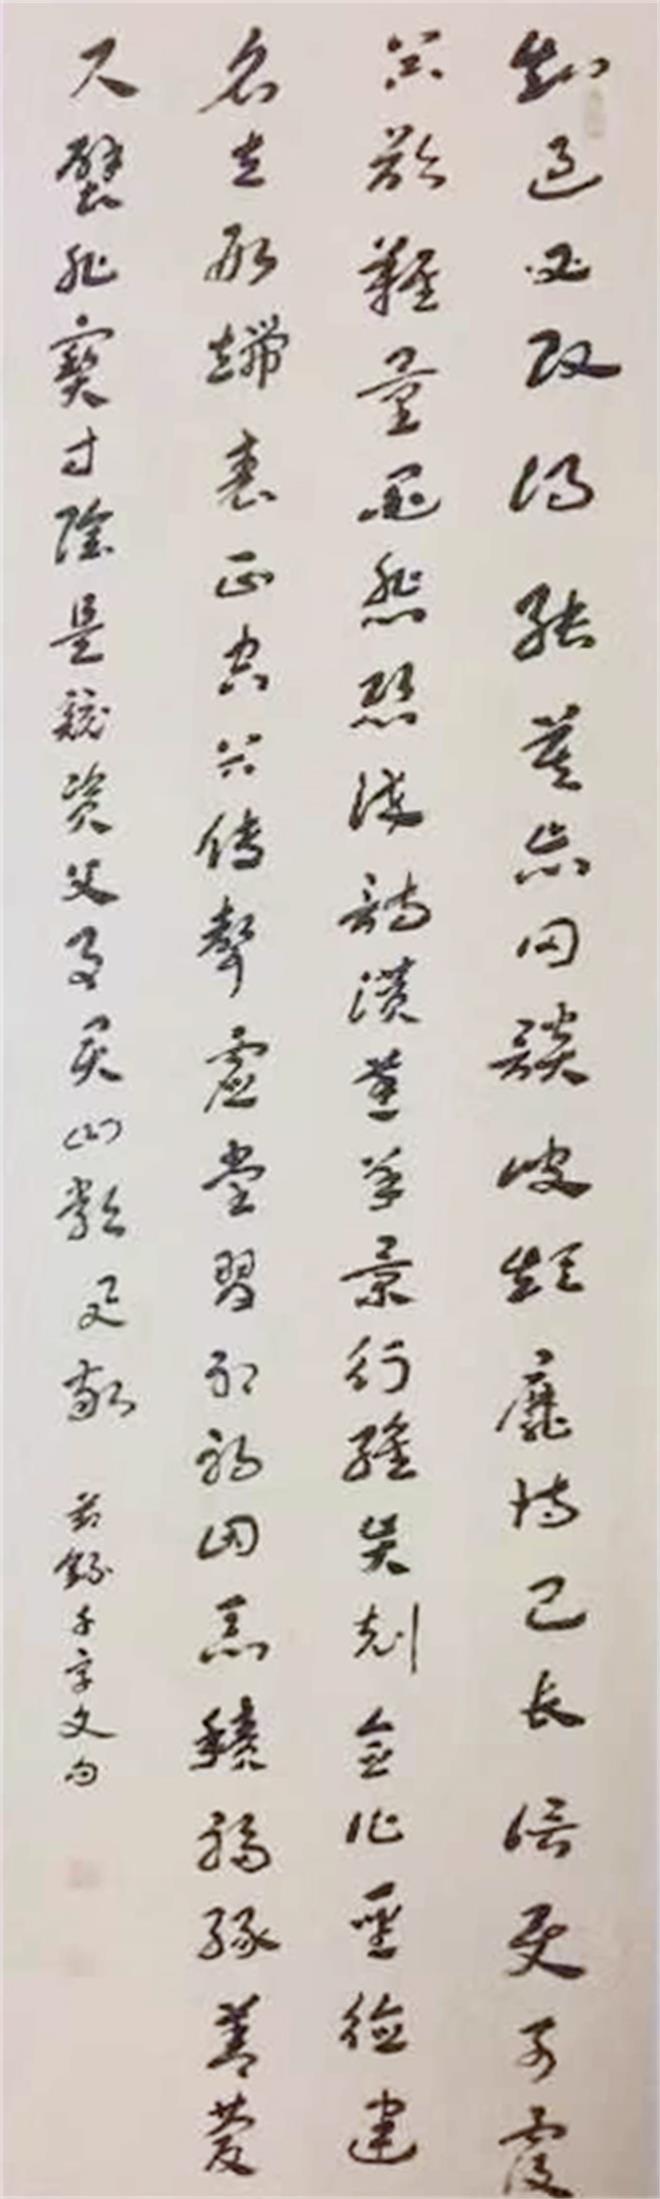 知過必改得能莫忘罔談彼短靡恃己長信使可覆
器欲難量墨悲絲染詩讚羔羊景行維賢剋念作聖德建
名立形端表正空谷傳聲虛堂習聽禍因惡積福緣善慶
尺璧非寶寸陰是競資父事君曰嚴與敬 節錄千字文句